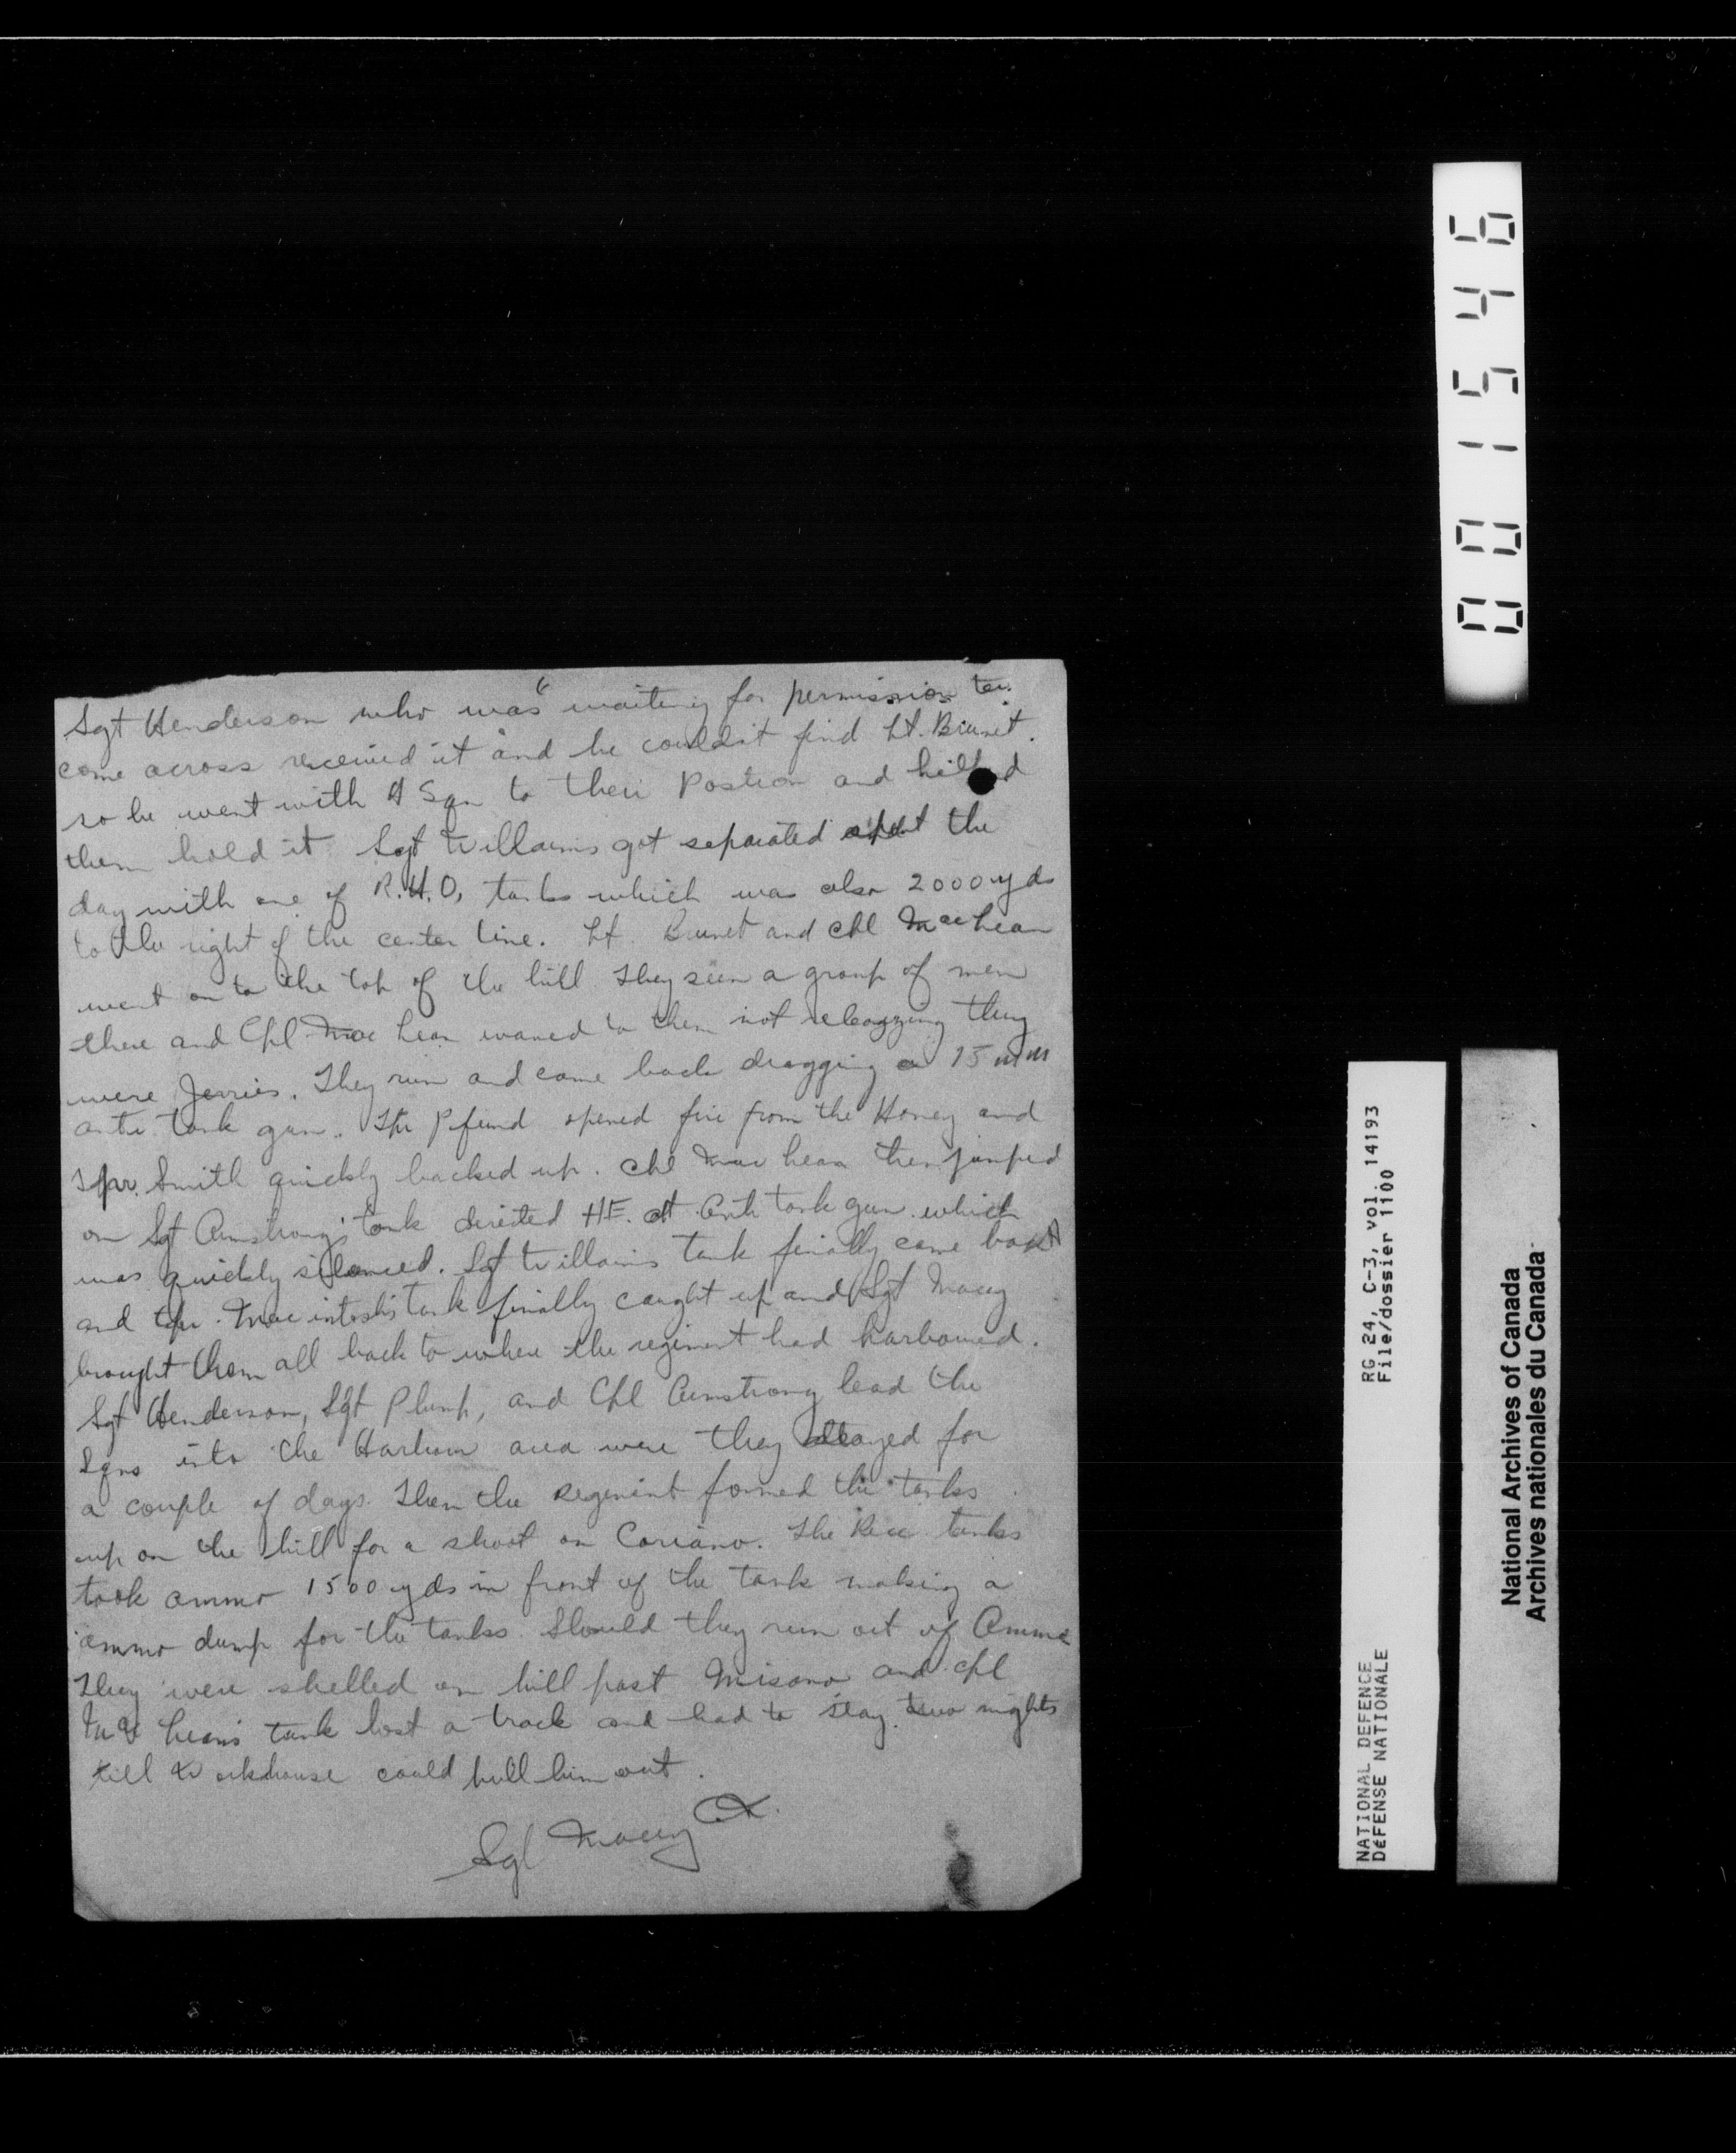 Sgt Henderson who was waiting for permission to
come across received it and he couldn't find Lt. Brunet.
so he went with A Sqn to their Postion and helped
them hold it Sgt Williams got separated spent the
day with one of R.H.Q, tanks which was also 2000 yds
to the right of the center line. Lt. Brunet and Cpl MacLean
went on to the top of the hill They seen a group of men
there and Cpl MacLean waved to them not they
were Jerries. They run and came back dragging a 75 mm
anti tank gun. Tpr Pfund opened fire from the Honey and
Tpr. Smith quickly backed up. Cpl MacLean then jumped
on Sgt Armstrong's tank directed HE. at Anti tank gun which
was quickly silenced. Sgt Williams tank finally came back
and Tpr. MacIntosh's tank finally caught up and Sgt Macey
brought them all back to where the regiment had harboured.
Sgt Henderson, Sgt Plump, and Cpl Armstrong lead the
Sqns into the Harbour area were they stayed for
a couple of days. Then the Regiment formed the tanks
up on the hill for a shoot on Coriano. The Rece tanks
took ammo 1500 yds in front of the tank making a
ammo dump for the tanks. Should they run out of Ammo
They were shelled on hill past Misano and Cpl
MacLean's tank lost a track and had to stay two nights
till Workhouse could pull him out.
Sgt Macey
001546
RG 24, C-3, vol. 14193
File/dossier 1100
NATIONAL DEFENCE
DÉFENSE NATIONALE
National Archives of Canada
Archives nationales du Canada